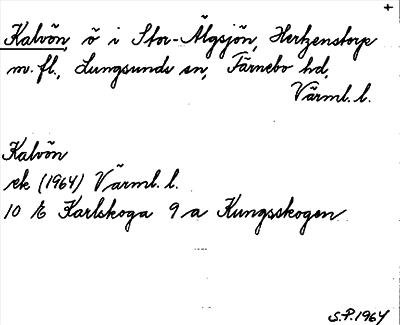 +
Kalvön, ö i Stor-Älgsjön, Hertzenstorp
m.fl., Lungsunds sn, Färnebo hd,
Värml. l.
Kalvön
ek (1964) Värml. l.
10 E Karlskoga 9 a Kungsskogen
S.P. 1964